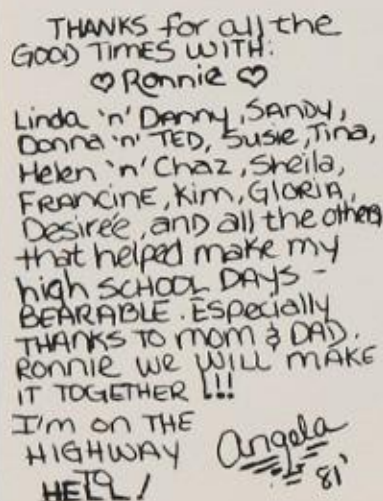 THANKS for all the
GOOD TIMES WITH:
♡ Ronnie ♡
Linda 'n' Danny, SANDY,
Donna 'n' TED, Susie, Tina,
Helen 'n' Chaz, Sheila,
FRANCINE, Kim, GLORIA,
Desireé, AND all the others
that helped make my
high SCHOOL DAYS -
BEARABLE. Especially
THANKS to mom & DAD.
Ronnie we WILL MAKE
IT TOGETHER !!!
I'm on THE
HIGHWAY
TO
HELL!
Angela
81'